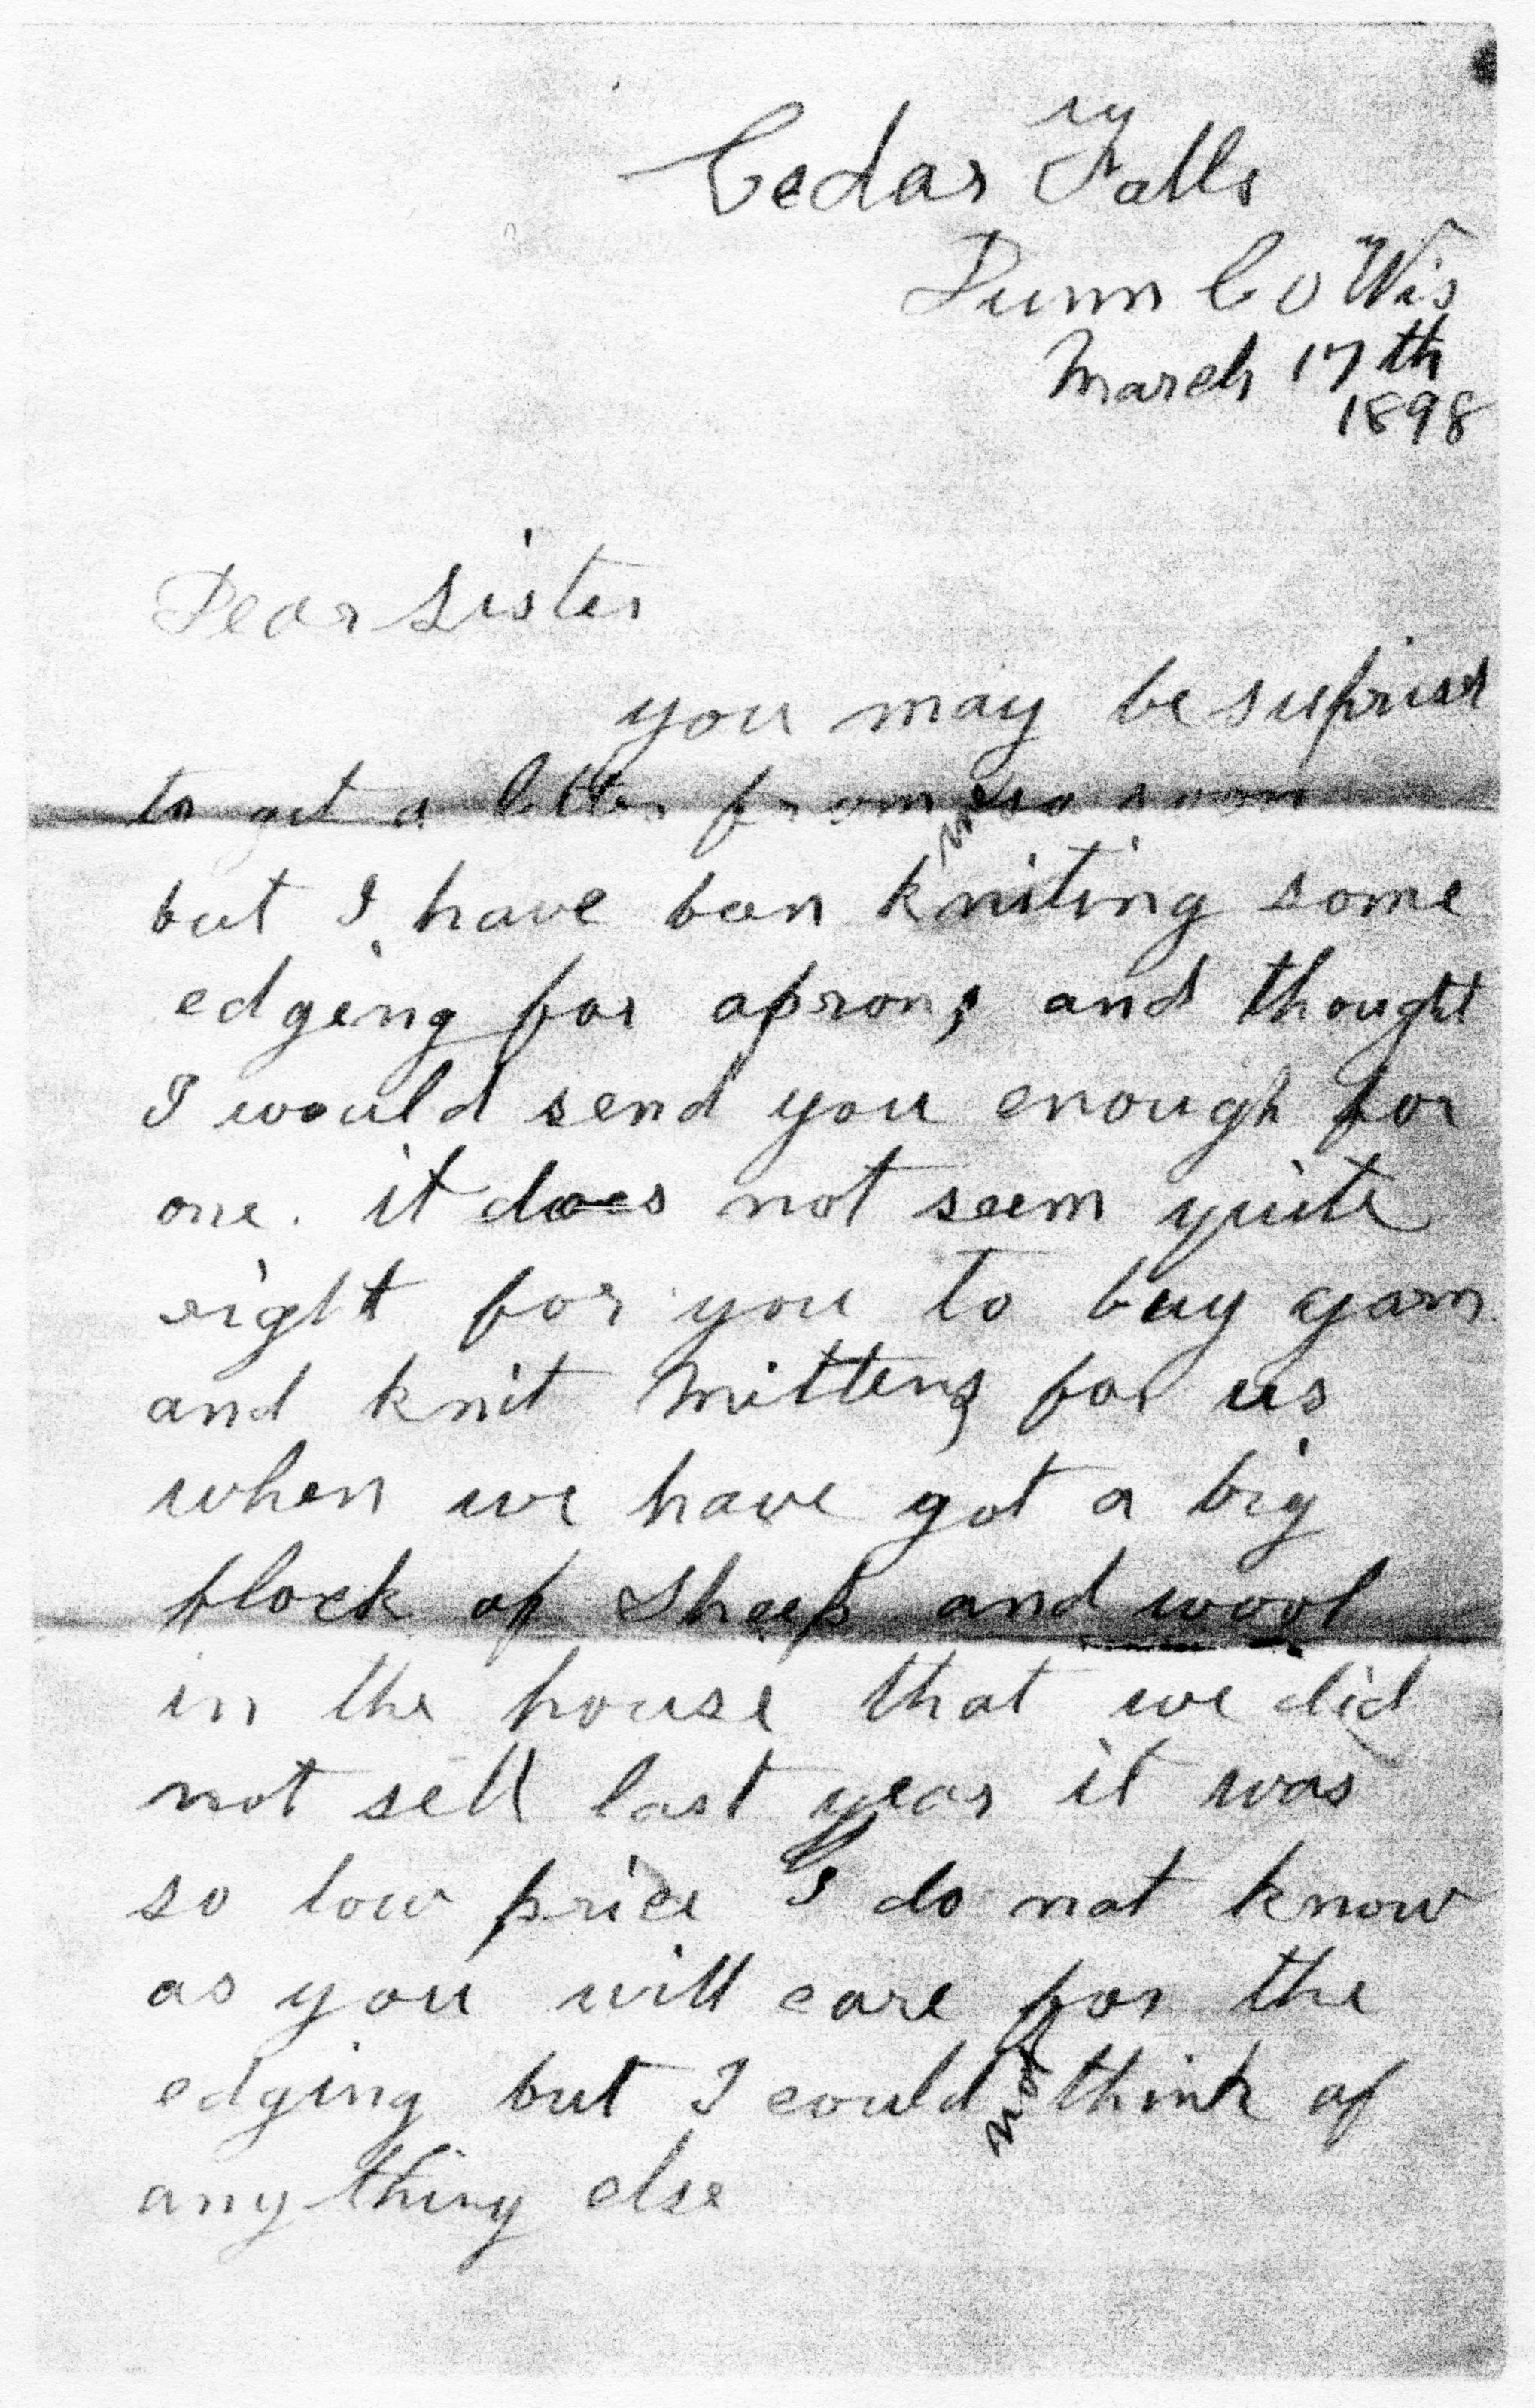 Cedar Falls
Dunn Co Wis
March 17th
1898
Dear Sister
you may be suprisd
to get a letter from me so soon
but I have ben kniting some
edgeing for aprons and thought
I would send you enough for
one. it does not seem quite
right for you to buy yarn
and knit Mittens for us
when we have got a big
flock of Sheep and wool
in the house that we did
not sell last year it was
so low price I do not know
as you will care for the
edging but I could not think of
any thing else